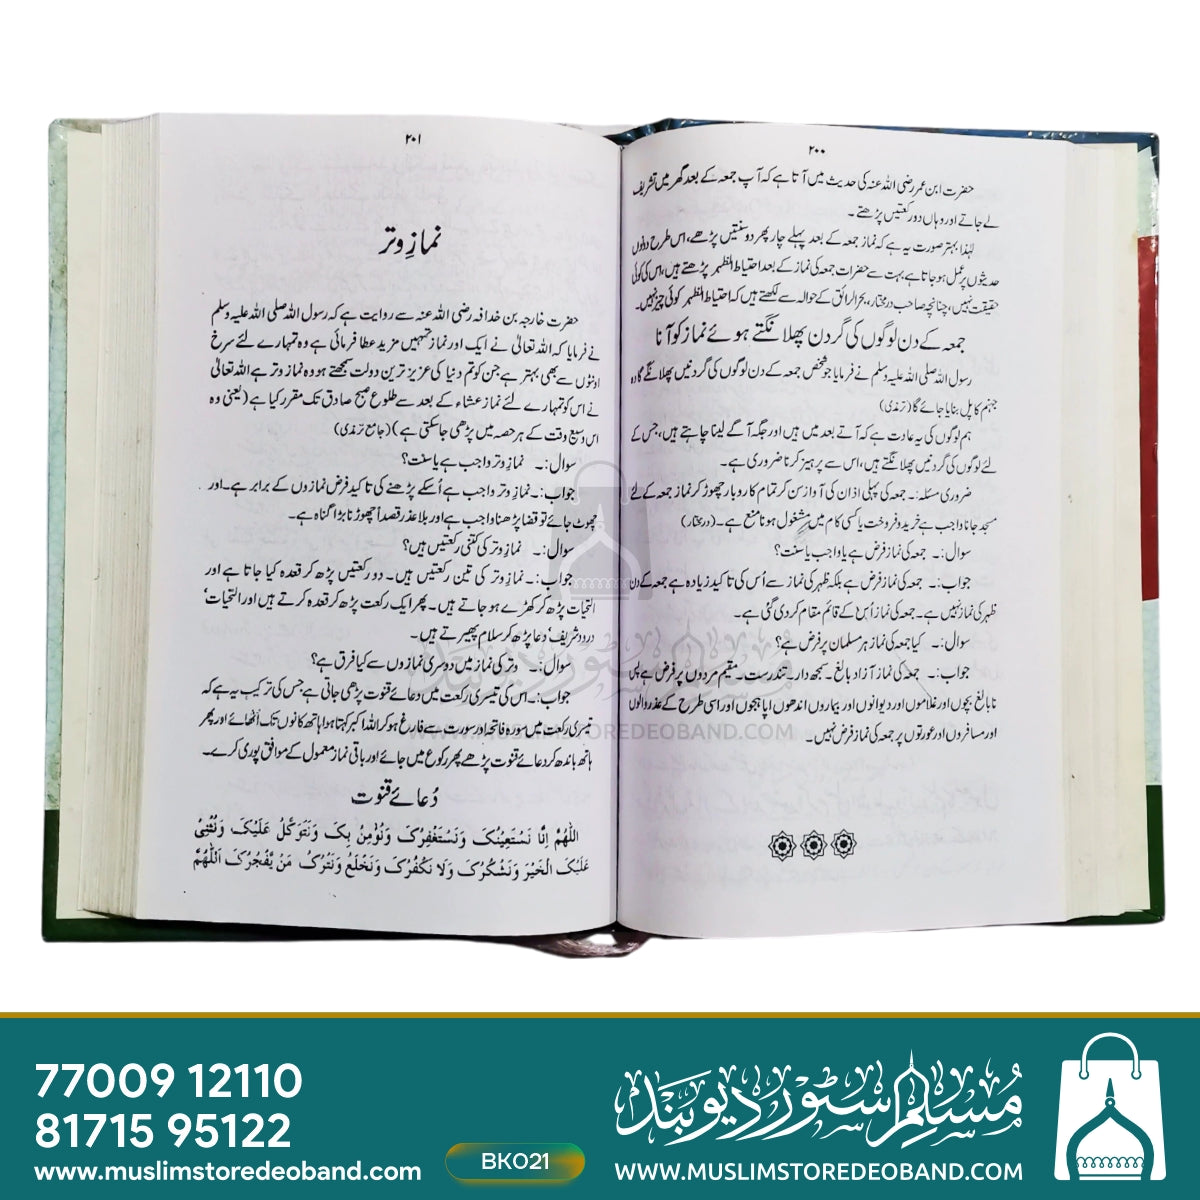 ۲۰۰
حضرت ابن عمر رضی اللہ عنہ کی حدیث میں آتا ہے کہ آپ جمعہ کے بعد گھر میں تشریف
لے جاتے اور وہاں دو رکعتیں پڑھتے۔
لہٰذا بہتر صورت یہ ہے کہ نماز جمعہ کے بعد پہلے چار پھر دو سنتیں پڑھے، اس طرح دونوں
حدیثوں پر عمل ہو جاتا ہے بہت سے حضرات جمعہ کی نماز کے بعد احتیاط الظہر پڑھتے ہیں، اس کی کوئی
حقیقت نہیں، چنانچہ صاحب درمختار، بحرالرائق کے حوالہ سے لکھتے ہیں کہ احتیاط الظہر کوئی چیز نہیں۔
جمعہ کے دن لوگوں کی گردن پھلانگتے ہوئے نماز کو آنا
رسول اللہ صلی اللہ علیہ وسلم نے فرمایا جو شخص جمعہ کے دن لوگوں کی گردنیں پھلانگے گا وہ
جہنم کا پل بنایا جائے گا (ترمذی)
ہم لوگوں کی یہ عادت ہے کہ آتے بعد میں ہیں اور جگہ آگے لینا چاہتے ہیں، جس کے
لئے لوگوں کی گردنیں پھلانگتے ہیں، اس سے پرہیز کرنا ضروری ہے۔
ضروری مسئلہ:۔ جمعہ کی پہلی اذان کی آواز سن کر تمام کاروبار چھوڑ کر نماز جمعہ کے لئے
مسجد جانا واجب ہے خرید و فروخت یا کسی کام میں مشغول ہونا منع ہے۔ (درمختار)
سوال:۔ جمعہ کی نماز فرض ہے یا واجب یا سنت؟
جواب:۔ جمعہ کی نماز فرض ہے بلکہ ظہر کی نماز سے اُس کی تاکید زیادہ ہے جمعہ کے دن
ظہر کی نماز نہیں ہے۔ جمعہ کی نماز اُس کے قائم مقام کر دی گئی ہے۔
سوال:۔ کیا جمعہ کی نماز ہر مسلمان پر فرض ہے؟
جواب:۔ جمعہ کی نماز آزاد بالغ۔ سمجھ دار۔ تندرست۔ مقیم مردوں پر فرض ہے پس
نابالغ بچوں اور غلاموں اور دیوانوں اور بیماروں اندھوں اپاہجوں اور اسی طرح کے عذر والوں
اور مسافروں اور عورتوں پر جمعہ کی نماز فرض نہیں۔
۲۰۱
نمازِ وتر
حضرت خارجہ بن خدافہ رضی اللہ عنہ سے روایت ہے کہ رسول اللہ صلی اللہ علیہ وسلم
نے فرمایا کہ اللہ تعالیٰ نے ایک اور نماز تمہیں مزید عطا فرمائی ہے وہ تمہارے لئے سرخ
اونٹوں سے بھی بہتر ہے جن کو تم دنیا کی عزیز ترین دولت سمجھتے ہو وہ نماز وتر ہے اللہ تعالیٰ
نے اس کو تمہارے لئے نماز عشاء کے بعد سے طلوع صبح صادق تک مقرر کیا ہے (یعنی وہ
اس وسیع وقت کے ہر حصہ میں پڑھی جاسکتی ہے) (جامع ترمذی)
سوال:۔ نمازِ وتر واجب ہے یا سنت؟
جواب:۔ نمازِ وتر واجب ہے اُسکے پڑھنے کی تاکید فرض نمازوں کے برابر ہے۔ اور
چھوٹ جائے تو قضا پڑھنا واجب ہے اور بلا عذر قصداً چھوڑنا بڑا گناہ ہے۔
سوال:۔ نمازِ وتر کی کتنی رکعتیں ہیں؟
جواب:۔ نمازِ وتر کی تین رکعتیں ہیں۔ دو رکعتیں پڑھ کر قعدہ کیا جاتا ہے اور
التحیات پڑھ کر کھڑے ہو جاتے ہیں۔ پھر ایک رکعت پڑھ کر قعدہ کرتے ہیں اور التحیات'
درود شریف' دعا پڑھ کر سلام پھیرتے ہیں۔
سوال:۔ وتر کی نماز میں دوسری نمازوں سے کیا فرق ہے؟
جواب:۔ اس کی تیسری رکعت میں دعائے قنوت پڑھی جاتی ہے جس کی ترکیب یہ ہے کہ
تیسری رکعت میں سورہ فاتحہ اور سورت سے فارغ ہو کر اللہ اکبر کہتا ہوا ہاتھ کانوں تک اٹھائے اور پھر
ہاتھ باندھ کر دعائے قنوت پڑھے پھر رکوع میں جائے اور باقی نماز معمول کے موافق پوری کرے۔
دُعائے قنوت
اَللّٰھُمَّ اِنَّا نَسْتَعِیْنُکَ وَنَسْتَغْفِرُکَ وَنُؤْمِنُ بِکَ وَنَتَوَکَّلُ عَلَیْکَ وَنُثْنِیْ
عَلَیْکَ الْخَیْرَ وَنَشْکُرُکَ وَلَا نَکْفُرُکَ وَنَخْلَعُ وَنَتْرُکُ مَنْ یَّفْجُرُکَ اَللّٰھُمَّ
مسلم سٹور دیوبند
WWW.MUSLIMSTOREDEOBAND.COM
77009 12110
81715 95122
www.muslimstoredeoband.com
BK021
مُسلم سٹور دیوبند
WWW.MUSLIMSTOREDEOBAND.COM